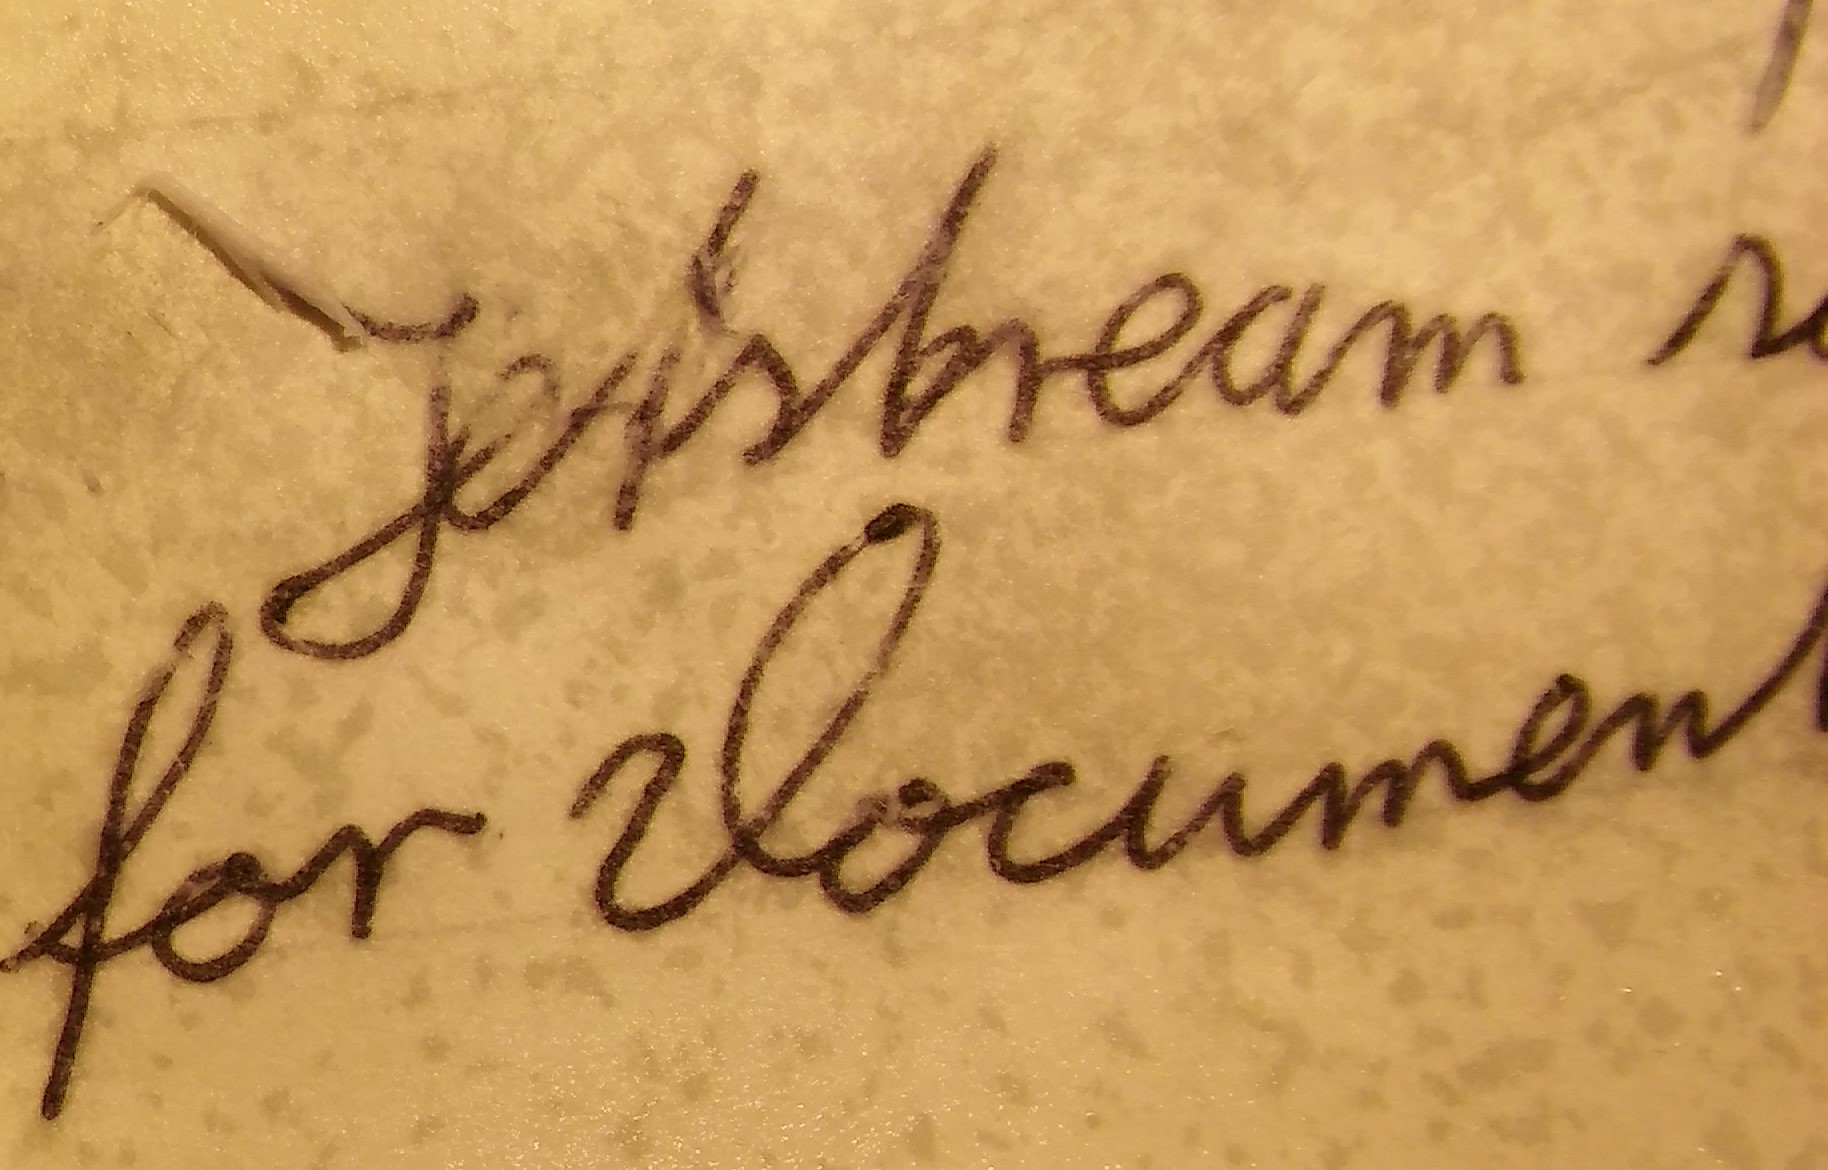 Jetstream
for document